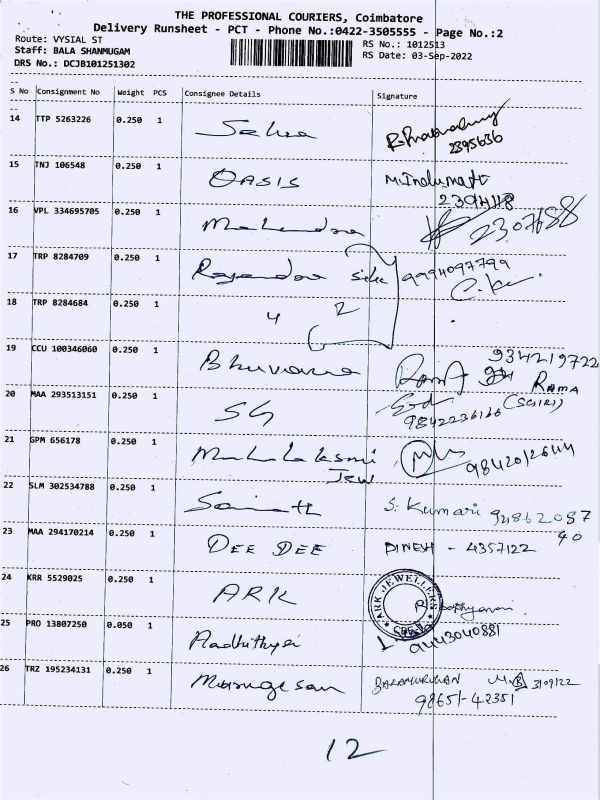 THE PROFESSIONAL COURIERS, Coimbatore
Delivery Runsheet - PCT - Phone No.:0422-3505555 - Page No.:2
Route: VYSIAL ST
RS No.: 1012513
Staff: BALA SHANMUGAM
RS Date: 03-Sep-2022
DRS No.: DCJB101251302
S No Consignment No Weight PCS Consignee Details Signature
14 TTP 5263226 0.250 1 Selva
2395636
15 TNJ 106548 0.250 1 OASIS M. Indumathi
16 VPL 334695705 0.250 1 Mahendra 2307688
17 TRP 8284709 0.250 1 Rajendra silk 9994097799
18 TRP 8284684 0.250 1 4 2
19 CCU 100346060 0.250 1 Bhuvana 934219722
RAMA
20 MAA 293513151 0.250 1 SG
9842236166
21 GPM 656178 0.250 1 Mahalaksmi
Jew
22 SLM 302534788 0.250 1 Sainath S. Kumari 92862087
90
23 MAA 294170214 0.250 1 DEE DEE DINESH - 4357122
24 KRR 5529025 0.250 1 ARK ARK JEWELLERS
25 PRO 13807250 0.050 1 Aadhithya 9443040881
26 TRZ 195234131 0.250 1 Murugesan BALAMURUGAN 3/09/22
98651-42351
12